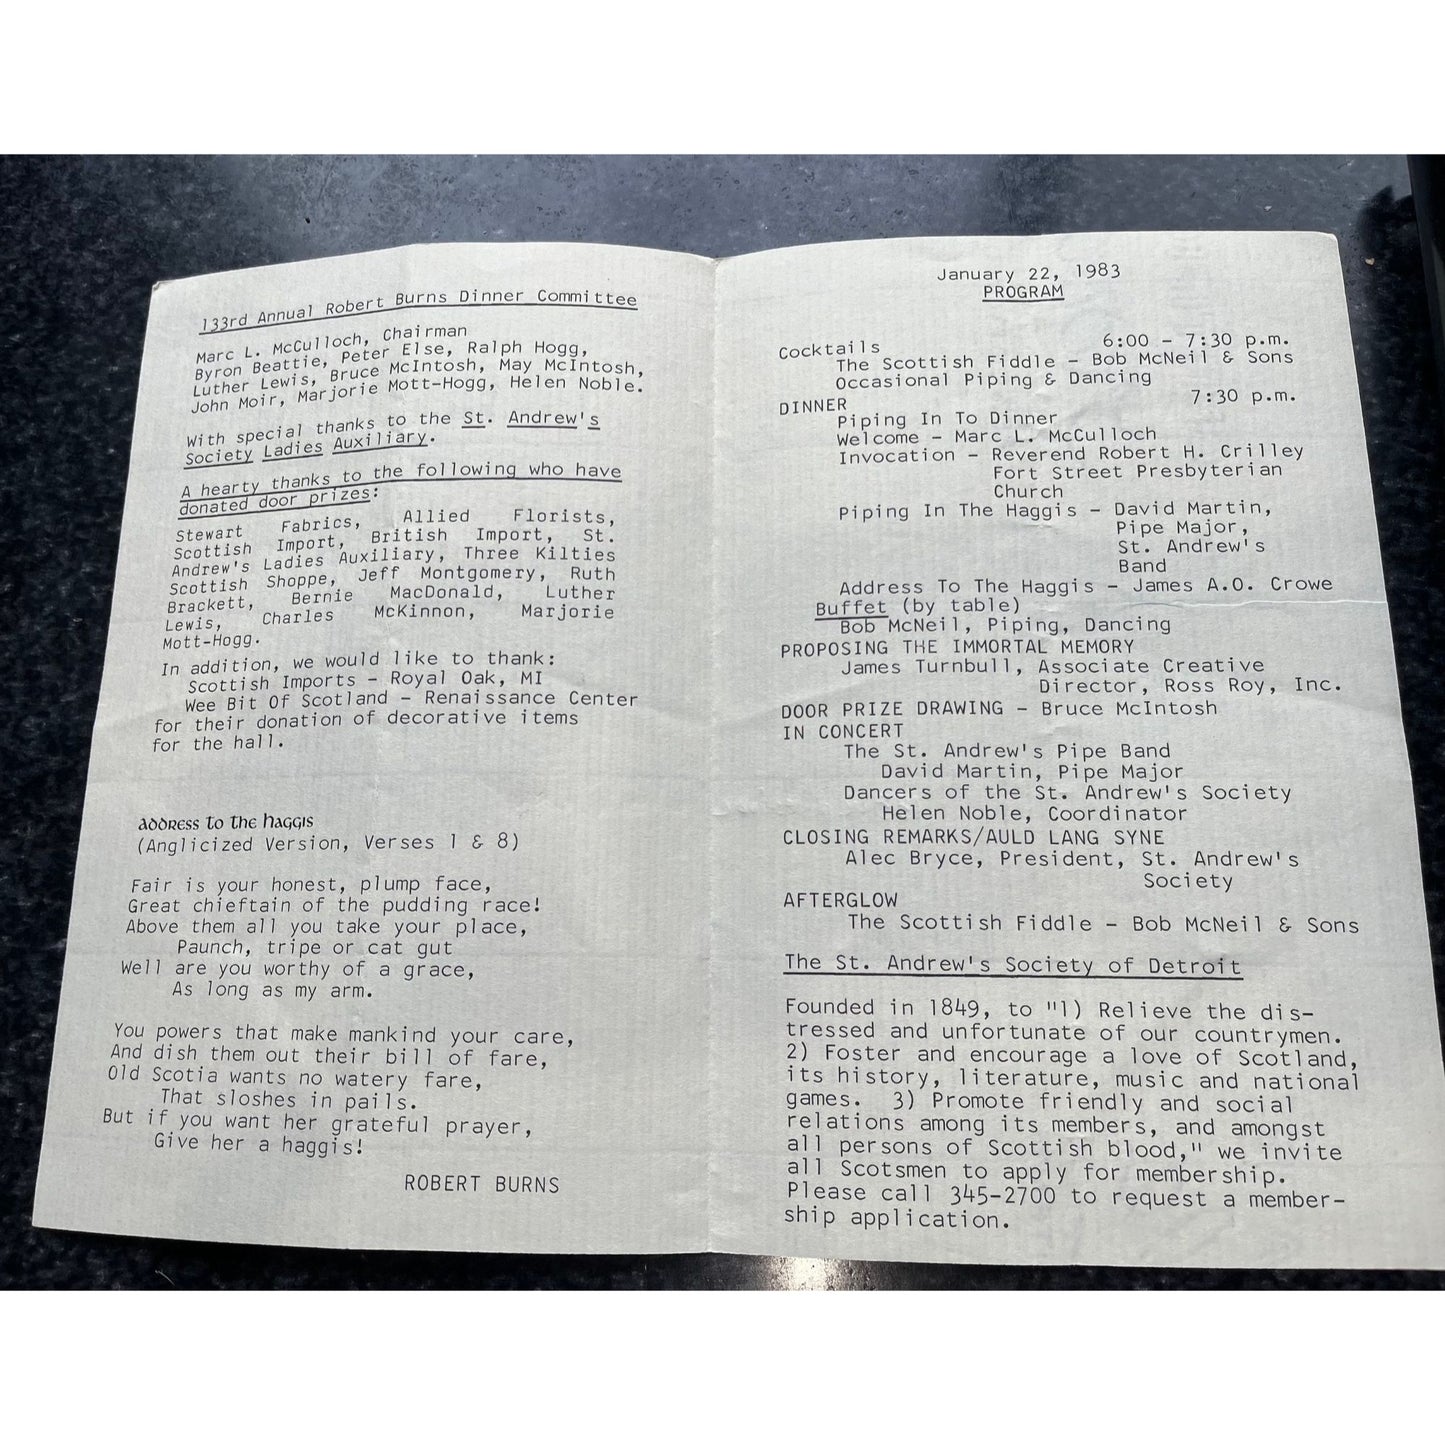 133rd Annual Robert Burns Dinner Committee
Marc L. McCulloch, Chairman
Byron Beattie, Peter Else, Ralph Hogg,
Luther Lewis, Bruce McIntosh, May McIntosh,
John Moir, Marjorie Mott-Hogg, Helen Noble.
With special thanks to the St. Andrew's
Society Ladies Auxiliary.
A hearty thanks to the following who have
donated door prizes:
Stewart Fabrics, Allied Florists,
Scottish Import, British Import, St.
Andrew's Ladies Auxiliary, Three Kilties
Scottish Shoppe, Jeff Montgomery, Ruth
Brackett, Bernie MacDonald, Luther
Lewis, Charles McKinnon, Marjorie
Mott-Hogg.
In addition, we would like to thank:
Scottish Imports - Royal Oak, MI
Wee Bit Of Scotland - Renaissance Center
for their donation of decorative items
for the hall.
address to the haggis
(Anglicized Version, Verses 1 & 8)
Fair is your honest, plump face,
Great chieftain of the pudding race!
Above them all you take your place,
Paunch, tripe or cat gut
Well are you worthy of a grace,
As long as my arm.
You powers that make mankind your care,
And dish them out their bill of fare,
Old Scotia wants no watery fare,
That sloshes in pails.
But if you want her grateful prayer,
Give her a haggis!
ROBERT BURNS
January 22, 1983
PROGRAM
Cocktails 6:00 - 7:30 p.m.
The Scottish Fiddle - Bob McNeil & Sons
Occasional Piping & Dancing
DINNER 7:30 p.m.
Piping In To Dinner
Welcome - Marc L. McCulloch
Invocation - Reverend Robert H. Crilley
Fort Street Presbyterian
Church
Piping In The Haggis - David Martin,
Pipe Major,
St. Andrew's
Band
Address To The Haggis - James A.O. Crowe
Buffet (by table)
Bob McNeil, Piping, Dancing
PROPOSING THE IMMORTAL MEMORY
James Turnbull, Associate Creative
Director, Ross Roy, Inc.
DOOR PRIZE DRAWING - Bruce McIntosh
IN CONCERT
The St. Andrew's Pipe Band
David Martin, Pipe Major
Dancers of the St. Andrew's Society
Helen Noble, Coordinator
CLOSING REMARKS/AULD LANG SYNE
Alec Bryce, President, St. Andrew's
Society
AFTERGLOW
The Scottish Fiddle - Bob McNeil & Sons
The St. Andrew's Society of Detroit
Founded in 1849, to "1) Relieve the dis-
tressed and unfortunate of our countrymen.
2) Foster and encourage a love of Scotland,
its history, literature, music and national
games. 3) Promote friendly and social
relations among its members, and amongst
all persons of Scottish blood," we invite
all Scotsmen to apply for membership.
Please call 345-2700 to request a member-
ship application.